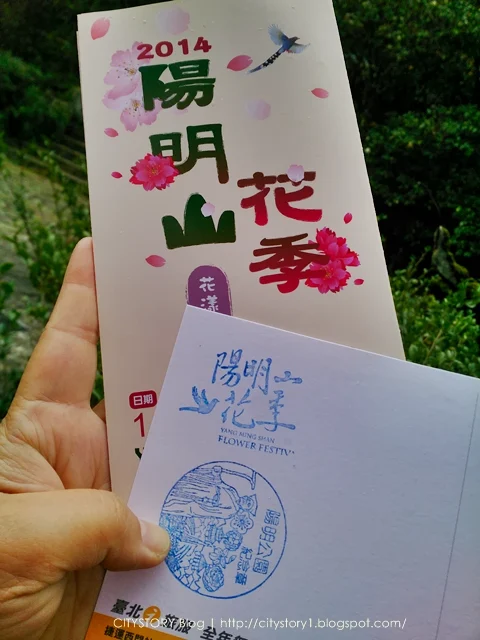 2014
陽明山
花季
花漾
日期
1
陽明山
花季
YANG MING SHAN
FLOWER FESTIV
陽明公園
紀念戳
臺北之旅服
全年
捷運西門
CITYSTORY Blog | http://citystory1.blogspot.com/